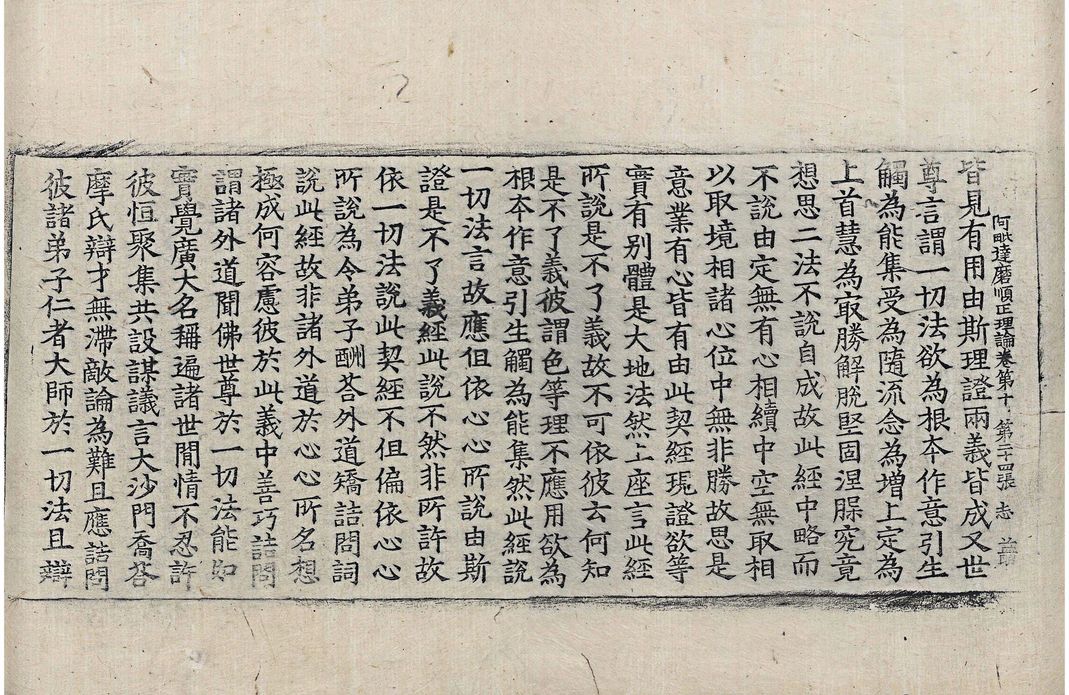 阿毗達磨順正理論卷第十 第二十四張 志
皆見有用由斯理證兩義皆成又世
尊言謂一切法欲為根夲作意引生
觸為能集受為隨流念為增上定為
上首慧為㝡勝解脫堅固涅槃究竟
想思二法不說自成故此經中略而
不說由定無有心相續中空無取相
以取境相諸心位中無非勝故思是
意業有心皆有由此契經現證欲等
實有别體是大地法然上座言此經
所說是不了義故不可依彼云何知
是不了義彼謂色等理不應用欲為
根夲作意引生觸為能集然此經說
一切法言故應但依心心所說由斯
證是不了義經此說不然非所許故
依一切法說此契經不但偏依心心
所說為令弟子酬荅外道矯詰問詞
說此經故非諸外道於心心所名想
極成何容慮彼於此義中善巧詰問
謂諸外道聞佛世尊於一切法能如
實覺廣大名稱遍諸世間情不忍許
彼恒聚集共設謀議言大沙門喬荅
摩氏辯才無滯敵論為難且應詰問
彼諸弟子仁者大師於一切法且辯